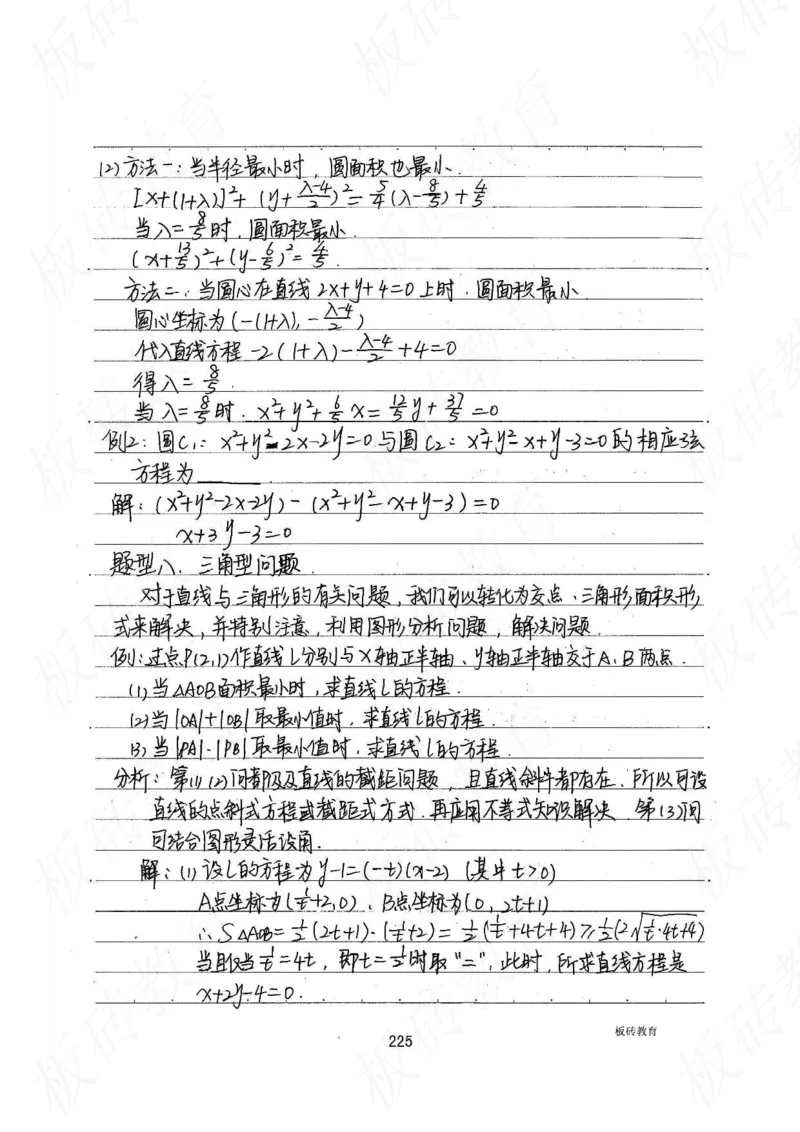 (2)方法一：当半径最小时，圆面积也最小.
[x+(1+λ)]²+(y+\frac{λ-4}{2})²=\frac{5}{4}(λ-\frac{8}{5})+\frac{4}{5}
当λ=\frac{8}{5}时，圆面积最小.
(x+\frac{13}{5})²+(y-\frac{6}{5})²=\frac{4}{5}.
方法二：当圆心在直线2x+y+4=0上时.圆面积最小.
圆心坐标为(-(1+λ),-\frac{λ-4}{2})
代入直线方程 -2(1+λ)-\frac{λ-4}{2}+4=0
得λ=\frac{8}{5}.
当λ=\frac{8}{5}时.x²+y²+\frac{6}{5}x=\frac{12}{5}y+\frac{37}{5}=0
例2：圆C₁：x²+y²-2x-2y=0与圆C₂：x²+y²-x+y-3=0的相应弦
方程为______
解：(x²+y²-2x-2y)-(x²+y²-x+y-3)=0
x+3y-3=0
题型八、三角型问题.
对于直线与三角形的有关问题，我们可以转化为交点、三角形面积形
式来解决，并特别注意，利用图形分析问题，解决问题.
例：过点P(2,1)作直线l分别与x轴正半轴、y轴正半轴交于A、B两点.
(1)当△AOB面积最小时，求直线l的方程.
(2)当|OA|+|OB|取最小值时，求直线l的方程.
(3)当|PA|·|PB|取最小值时，求直线l的方程.
分析：第(1)(2)问都涉及直线的截距问题，且直线斜率都存在.所以可设
直线的点斜式方程或截距式方式.再应用不等式知识解决.第(3)问
可结合图形灵活设角.
解：(1)设l的方程为y-1=(-t)(x-2) (其中t>0)
A点坐标为(\frac{1}{t}+2,0).B点坐标为(0,2t+1)
∴S△AOB=\frac{1}{2}(2t+1)·(\frac{1}{t}+2)=\frac{1}{2}(\frac{1}{t}+4t+4)≥\frac{1}{2}(2\sqrt{\frac{1}{t}·4t+4})
当且仅当\frac{1}{t}=4t，即t=\frac{1}{2}时取"="，此时，所求直线方程是
x+2y-4=0.
225
板砖教育